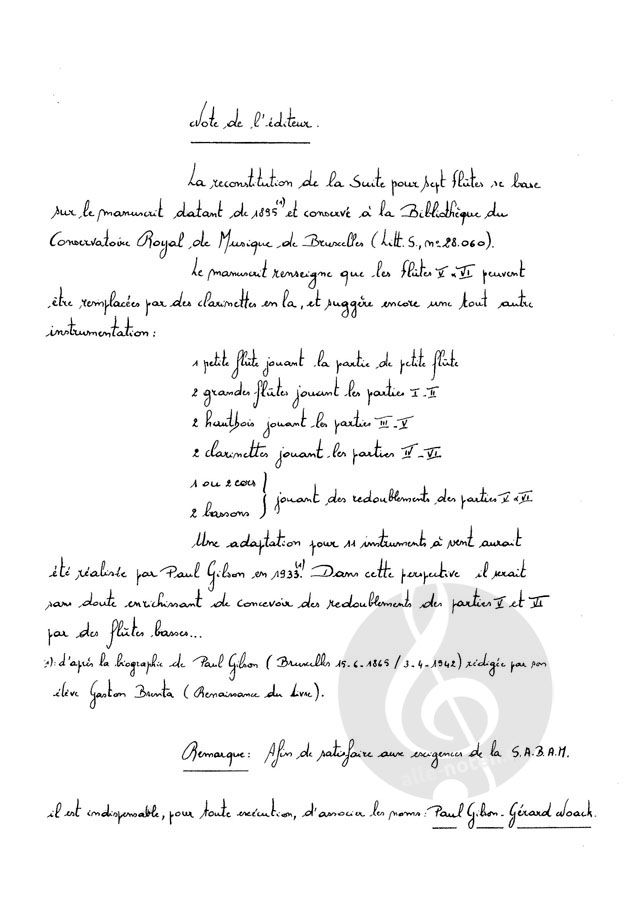 Note de l'éditeur.
La reconstitution de la Suite pour sept flûtes se base
sur le manuscrit datant de 1895(1) et conservé à la Bibliothèque du
Conservatoire Royal de Musique de Bruxelles (Litt. S., n° 28.060).
Le manuscrit renseigne que les flûtes V & VI peuvent
être remplacées par des clarinettes en la, et suggère encore une tout autre
instrumentation :
1 petite flûte jouant la partie de petite flûte
2 grandes flûtes jouant les parties I - II
2 hautbois jouant les parties III - V
2 clarinettes jouant les parties IV - VI
1 ou 2 cors
2 bassons } jouant des redoublements des parties V & VI
Une adaptation pour 11 instruments à vent aurait
été réalisée par Paul Gilson en 1933(1). Dans cette perspective il serait
sans doute enrichissant de concevoir des redoublements des parties V et VI
par des flûtes basses...
(1): d'après la biographie de Paul Gilson (Bruxelles 15-6-1865 / 3-4-1942) rédigée par son
élève Gaston Brenta (Renaissance du Livre).
Remarque: Afin de satisfaire aux exigences de la S.A.B.A.M.
il est indispensable, pour toute exécution, d'associer les noms: Paul Gilson - Gérard Noack.